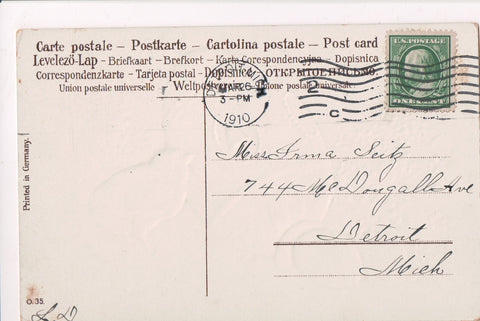 Carte postale – Postkarte – Cartolina postale – Post card
Levelező-Lap – Briefkaart – Brefkort – Karta Corespondencyjna – Dopisnica
Correspondenzkarte – Tarjeta postal – Dopisnice – ОТКРЫТОЕ ПИСЬМО.
Union postale universelle – Weltpostverein – Unione postale universale.
U.S. POSTAGE
ONE CENT
DETROIT, MICH.
MAR 26
3 - PM
1910
2
C
Miss Irma Seitz
744 McDougall Ave
Detroit
Mich
Printed in Germany.
O. 35.